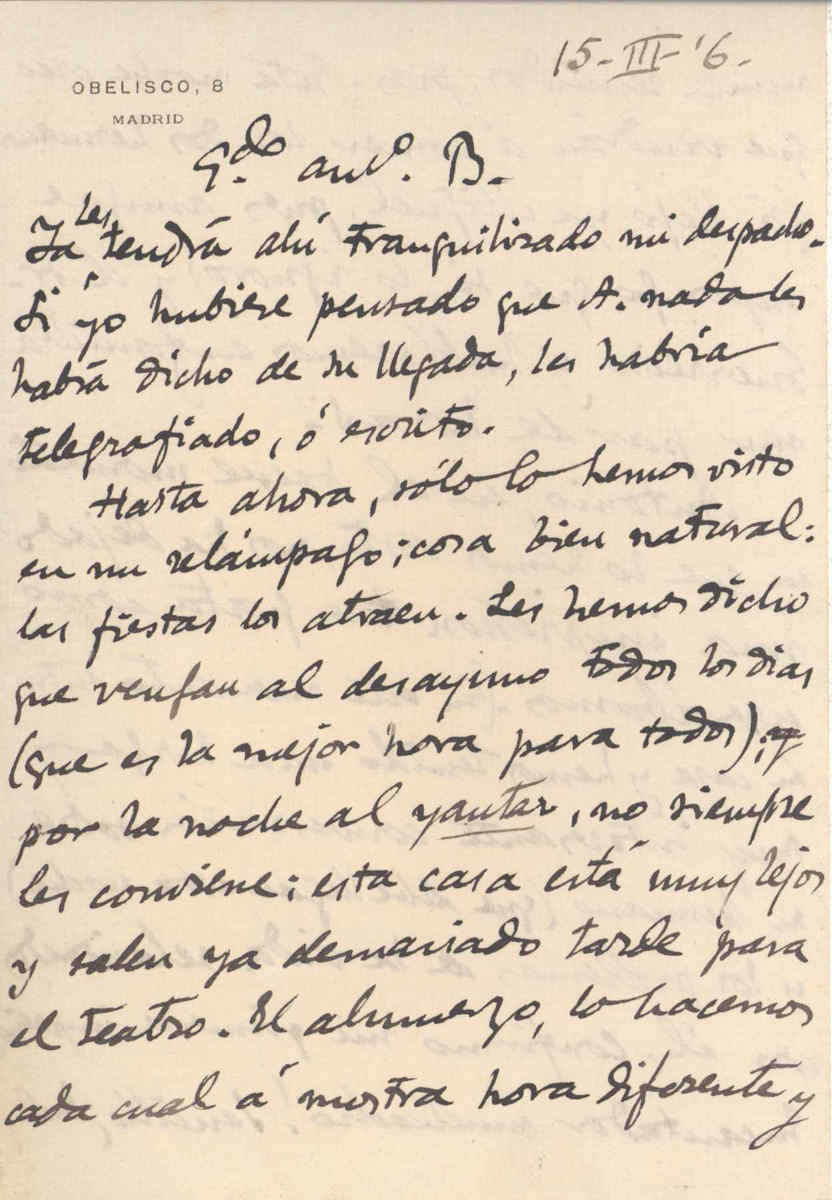 15-III-'6.
OBELISCO, 8
MADRID
Q.do am.o B.
Ya les tendrá ahí tranquilizado mi despacho.
Si yo hubiese pensado que A. nada les
había dicho de su llegada, les habría
telegrafiado, ó escrito.
Hasta ahora, sólo lo hemos visto
en un relámpago; cosa bien natural:
las fiestas los atraen. Les hemos dicho
que vengan al desayuno todos los dias
(que es la mejor hora para todos); y
por la noche al yantar, no siempre
les conviene: esta casa está muy lejos
y salen ya demasiado tarde para
el teatro. El almuerzo, lo hacemos
cada cual á nuestra hora diferente y